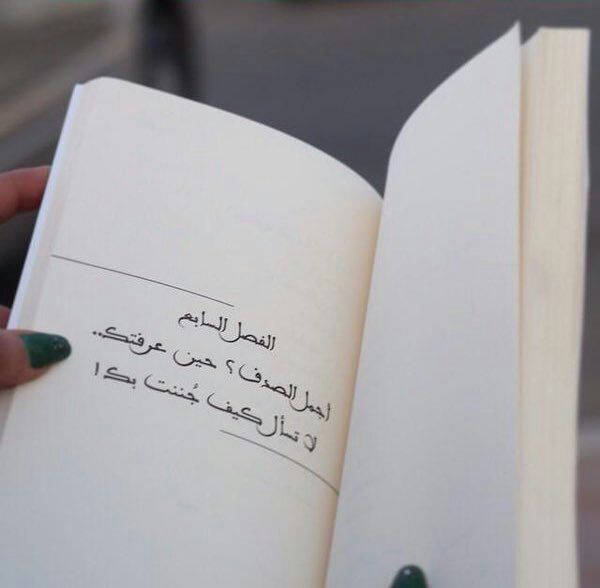 الفصل السابع
أجمل الصدف؟ حين عرفتك..
لا تسأل كيف جُننت بك!